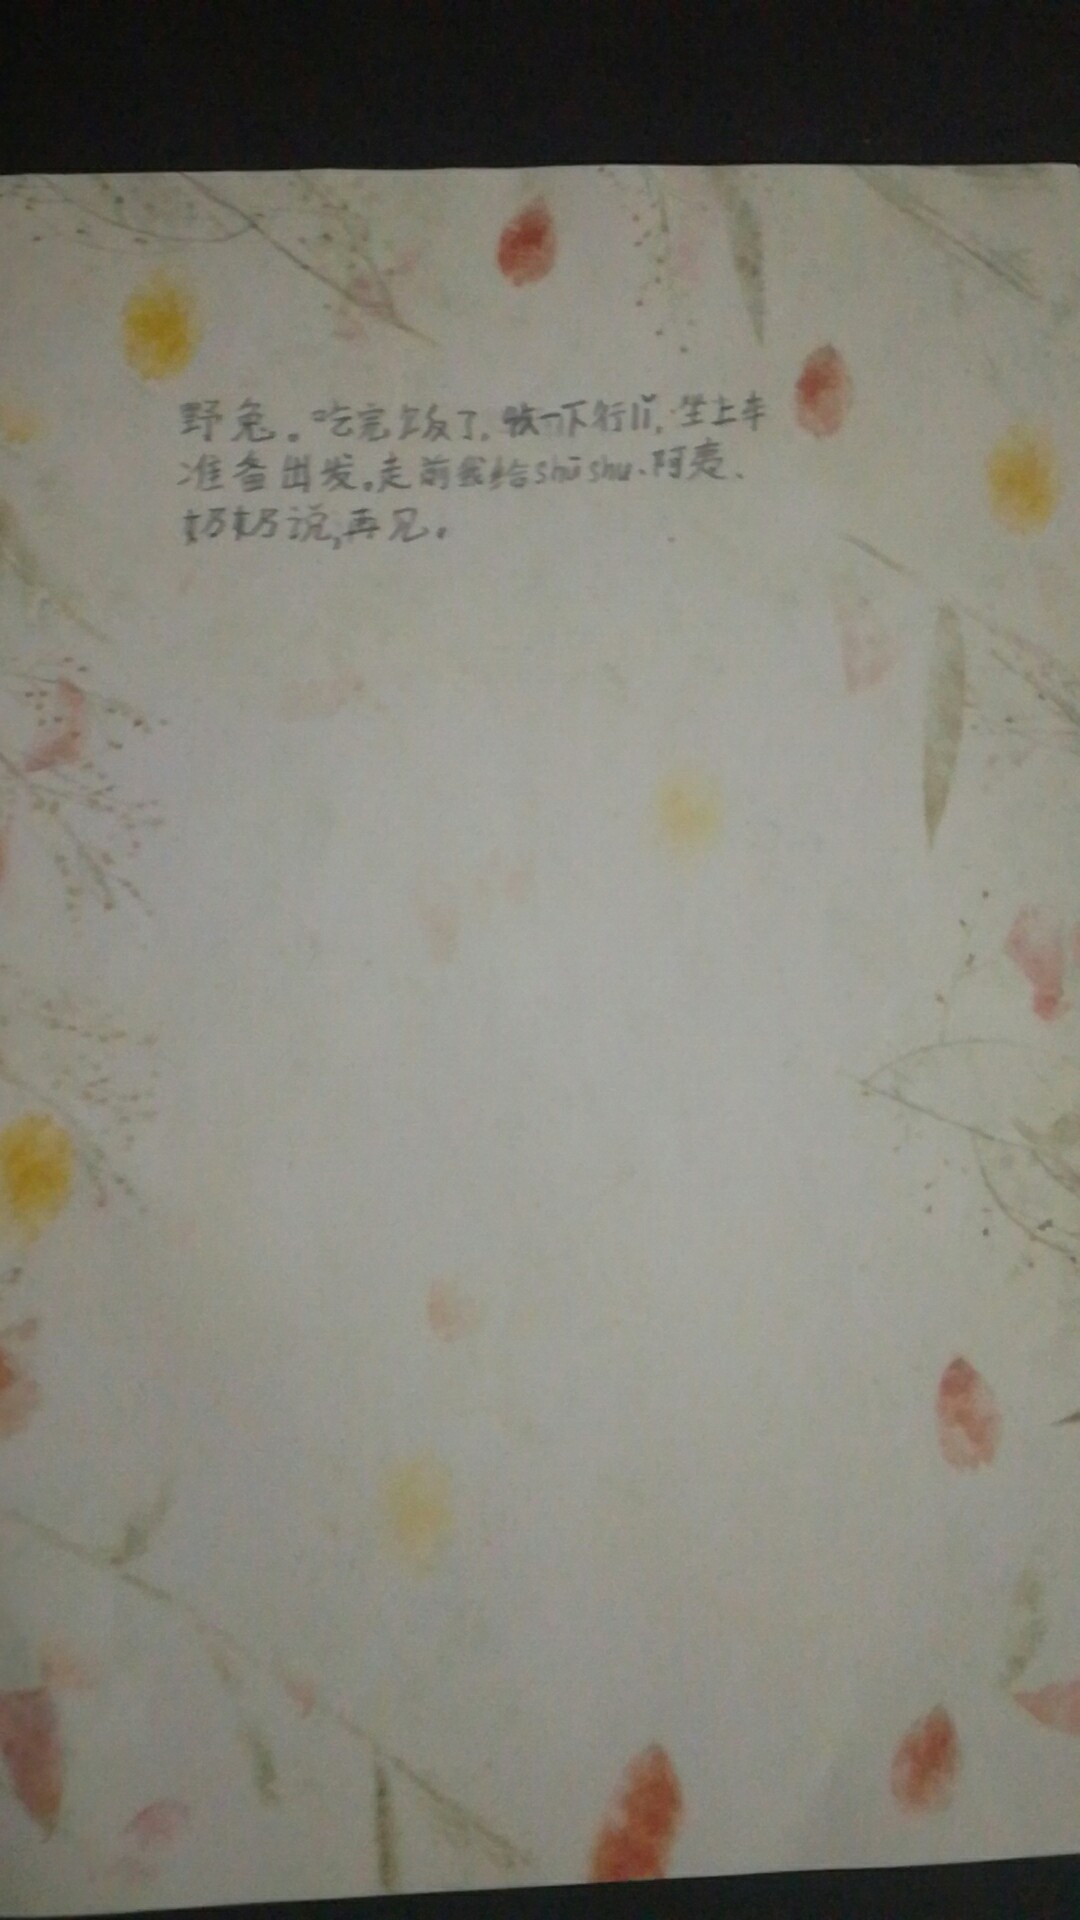 野兔。吃完饭了,收一下行lǐ,坐上车
准备出发。走前我给shūshu、阿麦、
奶奶说,再见。